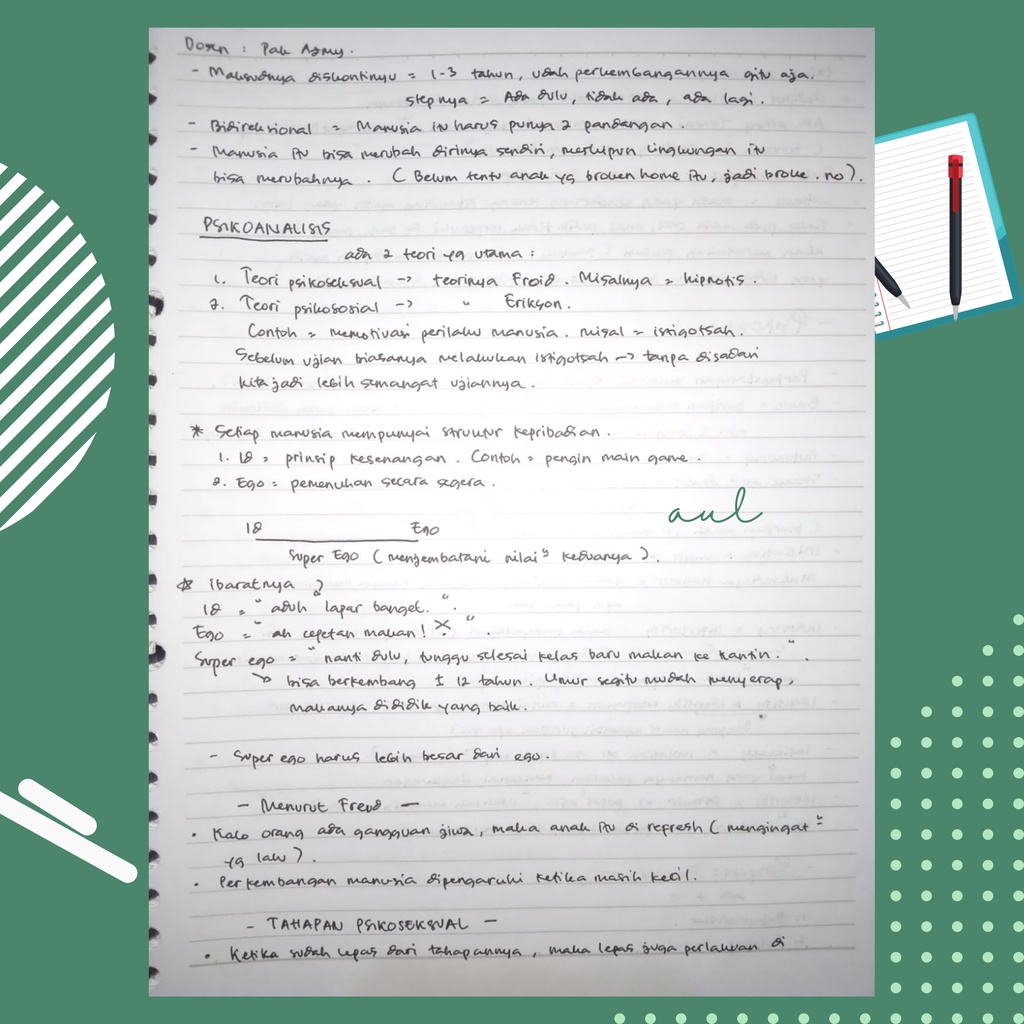 Dosen : Pak Azmy.
- Maksudnya diskontinyu = 1-3 tahun, udah perkembangannya gitu aja.
stepnya = Ada dulu, tidak ada, ada lagi.
- Bidireksional = Manusia itu harus punya 2 pandangan.
- Manusia itu bisa merubah dirinya sendiri, meskipun lingkungan itu
bisa merubahnya. ( Belum tentu anak yg broken home itu, jadi broke. no).
PSIKOANALISIS
ada 2 teori yg utama :
1. Teori psikoseksual -> teorinya Froid. Misalnya = hipnotis.
2. Teori psikososial -> " Erikson.
Contoh = memotivasi perilaku manusia. misal = istigotsah.
Sebelum ujian biasanya melakukan istigotsah -> tanpa disadari
kita jadi lebih semangat ujiannya.
* Setiap manusia mempunyai struktur kepribadian.
1. Id = prinsip kesenangan. Contoh = pengin main game.
2. Ego = pemenuhan secara segera.
aul
Id Ego
Super Ego ( menjembatani nilai" keduanya ).
☆ ibaratnya
Id = " aduh lapar banget. ".
Ego = " ah cepetan makan! x ".
Super ego = " nanti dulu, tunggu selesai kelas baru makan ke kantin. ".
↳ bisa berkembang ± 12 tahun. Umur segitu mudah menyerap,
makanya dididik yang baik.
- Super ego harus lebih besar dari ego.
- Menurut Freud -
• Kalo orang ada gangguan jiwa, maka anak itu di refresh ( mengingat"
yg lalu ).
• Perkembangan manusia dipengaruhi ketika masih kecil.
- TAHAPAN PSIKOSEKSUAL -
• Ketika sudah lepas dari tahapannya, maka lepas juga perlakuan di